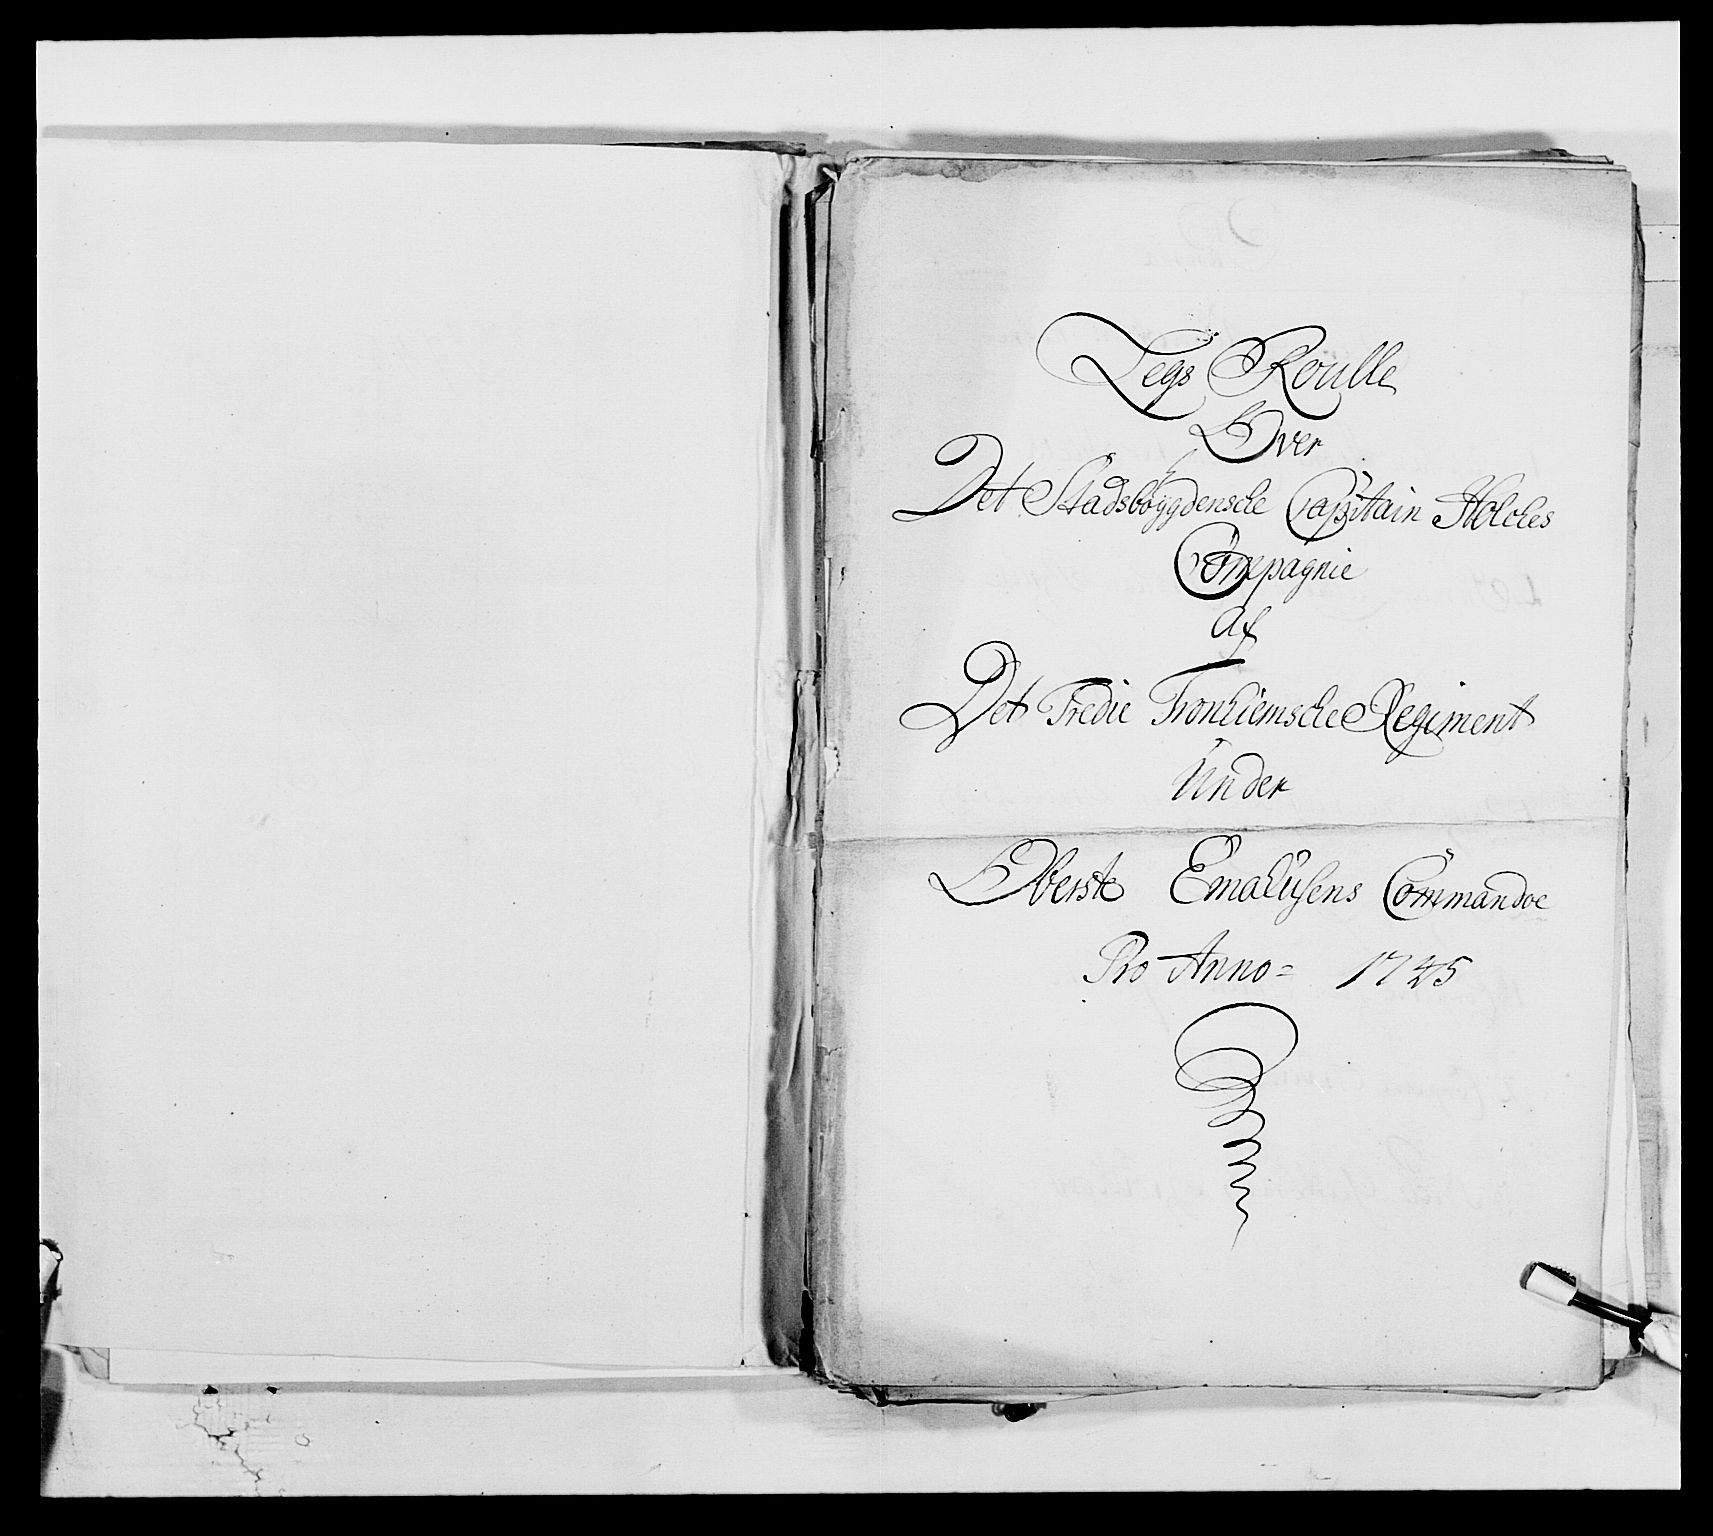 Legs Roulle
Over
Det Stadsbøygdensche Capitain Holches
Compagnie
Af
Det Tredie Tronhiemsche Regiment
Under
Oberste Emahusens Commandoe
Pro Anno = 1745